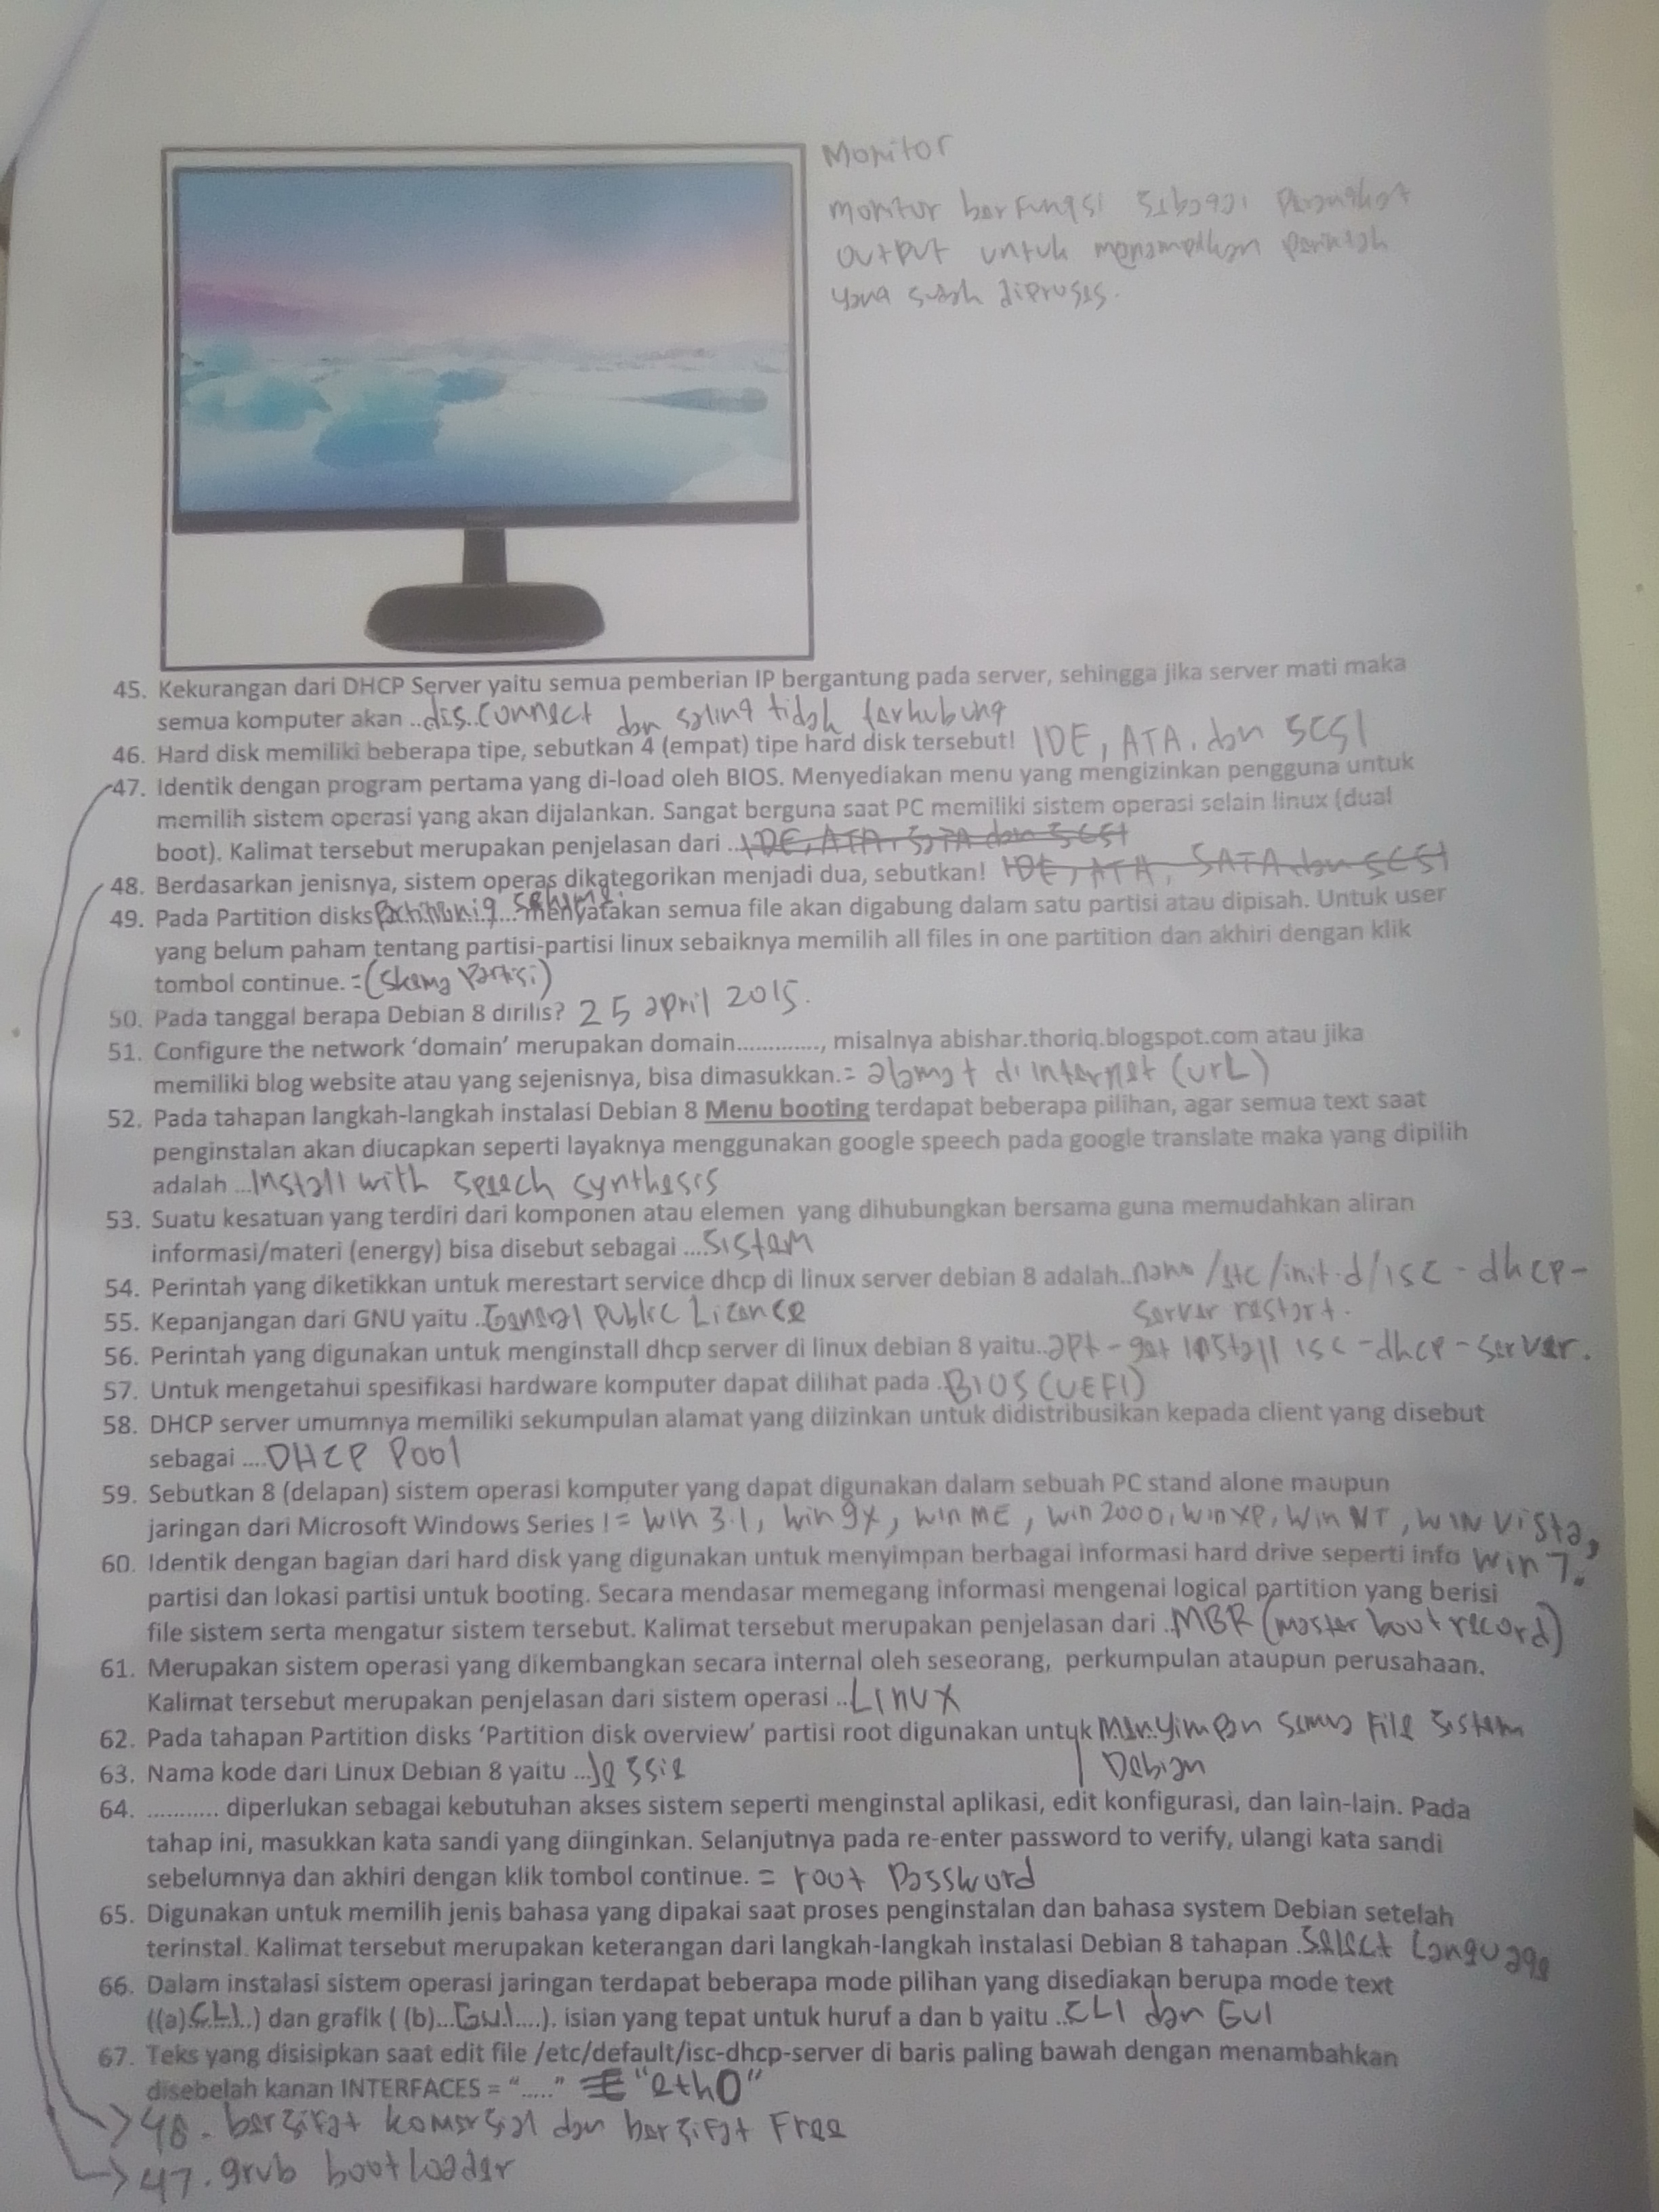 Monitor
monitor berfungsi sebagai perangkat
output untuk menampilkan perintah
yang sudah diproses.
45. Kekurangan dari DHCP Server yaitu semua pemberian IP bergantung pada server, sehingga jika server mati maka
semua komputer akan ..dis..connect dan saling tidak terhubung
46. Hard disk memiliki beberapa tipe, sebutkan 4 (empat) tipe hard disk tersebut! IDE, ATA, dan SCSI
47. Identik dengan program pertama yang di-load oleh BIOS. Menyediakan menu yang mengizinkan pengguna untuk
memilih sistem operasi yang akan dijalankan. Sangat berguna saat PC memiliki sistem operasi selain linux (dual
boot). Kalimat tersebut merupakan penjelasan dari ..IDE, ATA, SATA dan SCSI
48. Berdasarkan jenisnya, sistem operas dikategorikan menjadi dua, sebutkan! IDE, ATA, SATA dan SCSI
49. Pada Partition disks ... menyatakan semua file akan digabung dalam satu partisi atau dipisah. Untuk user
yang belum paham tentang partisi-partisi linux sebaiknya memilih all files in one partition dan akhiri dengan klik
tombol continue. = (skema Partisi)
50. Pada tanggal berapa Debian 8 dirilis? 25 april 2015.
51. Configure the network ‘domain’ merupakan domain............., misalnya abishar.thoriq.blogspot.com atau jika
memiliki blog website atau yang sejenisnya, bisa dimasukkan. = alamat di internet (urL)
52. Pada tahapan langkah-langkah instalasi Debian 8 Menu booting terdapat beberapa pilihan, agar semua text saat
penginstalan akan diucapkan seperti layaknya menggunakan google speech pada google translate maka yang dipilih
adalah ...Install with speech synthesis
53. Suatu kesatuan yang terdiri dari komponen atau elemen yang dihubungkan bersama guna memudahkan aliran
informasi/materi (energy) bisa disebut sebagai ....sistem
54. Perintah yang diketikkan untuk merestart service dhcp di linux server debian 8 adalah..nano /etc/init.d/isc-dhcp-
server restart.
55. Kepanjangan dari GNU yaitu ..General Public Licence
56. Perintah yang digunakan untuk menginstall dhcp server di linux debian 8 yaitu..apt-get install isc-dhcp-server.
57. Untuk mengetahui spesifikasi hardware komputer dapat dilihat pada ..BIOS (UEFI)
58. DHCP server umumnya memiliki sekumpulan alamat yang diizinkan untuk didistribusikan kepada client yang disebut
sebagai ....DHCP Pool
59. Sebutkan 8 (delapan) sistem operasi komputer yang dapat digunakan dalam sebuah PC stand alone maupun
jaringan dari Microsoft Windows Series ! = win 3.1, win 9x, win ME, win 2000, win XP, Win NT, WIN Vista,
win 7.
60. Identik dengan bagian dari hard disk yang digunakan untuk menyimpan berbagai informasi hard drive seperti info
partisi dan lokasi partisi untuk booting. Secara mendasar memegang informasi mengenai logical partition yang berisi
file sistem serta mengatur sistem tersebut. Kalimat tersebut merupakan penjelasan dari ..MBR (master boot record)
61. Merupakan sistem operasi yang dikembangkan secara internal oleh seseorang, perkumpulan ataupun perusahaan.
Kalimat tersebut merupakan penjelasan dari sistem operasi ..Linux
62. Pada tahapan Partition disks ‘Partition disk overview’ partisi root digunakan untuk Menyimpan semua file sistem
Debian
63. Nama kode dari Linux Debian 8 yaitu ...Jessie
64. ........... diperlukan sebagai kebutuhan akses sistem seperti menginstal aplikasi, edit konfigurasi, dan lain-lain. Pada
tahap ini, masukkan kata sandi yang diinginkan. Selanjutnya pada re-enter password to verify, ulangi kata sandi
sebelumnya dan akhiri dengan klik tombol continue. = root Password
65. Digunakan untuk memilih jenis bahasa yang dipakai saat proses penginstalan dan bahasa system Debian setelah
terinstal. Kalimat tersebut merupakan keterangan dari langkah-langkah instalasi Debian 8 tahapan .Select Language
66. Dalam instalasi sistem operasi jaringan terdapat beberapa mode pilihan yang disediakan berupa mode text
((a).CLI..) dan grafik ( (b)...GUI....). isian yang tepat untuk huruf a dan b yaitu ..CLI dan GUI
67. Teks yang disisipkan saat edit file /etc/default/isc-dhcp-server di baris paling bawah dengan menambahkan
disebelah kanan INTERFACES = “.....” = "eth0"
48. bersifat komersial dan bersifat Free
47. grub bootloader